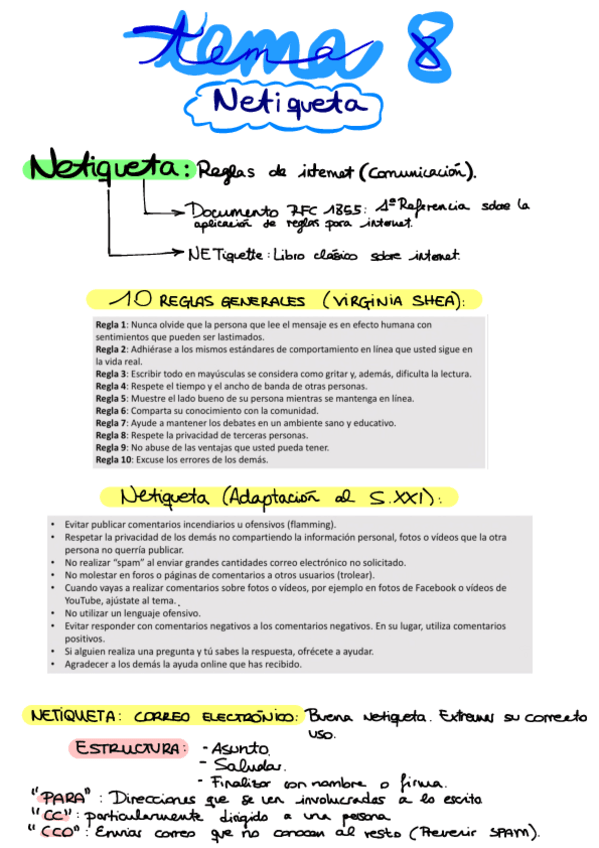 tema 8
Netiqueta
Netiqueta: Reglas de internet (comunicación).
Documento RFC 1855: 1ª Referencia sobre la
aplicación de reglas para internet.
NETiquette: Libro clásico sobre internet.
10 REGLAS GENERALES (VIRGINIA SHEA):
Regla 1: Nunca olvide que la persona que lee el mensaje es en efecto humana con
sentimientos que pueden ser lastimados.
Regla 2: Adhiérase a los mismos estándares de comportamiento en línea que usted sigue en
la vida real.
Regla 3: Escribir todo en mayúsculas se considera como gritar y, además, dificulta la lectura.
Regla 4: Respete el tiempo y el ancho de banda de otras personas.
Regla 5: Muestre el lado bueno de su persona mientras se mantenga en línea.
Regla 6: Comparta su conocimiento con la comunidad.
Regla 7: Ayude a mantener los debates en un ambiente sano y educativo.
Regla 8: Respete la privacidad de terceras personas.
Regla 9: No abuse de las ventajas que usted pueda tener.
Regla 10: Excuse los errores de los demás.
Netiqueta (Adaptación al S.XXI):
• Evitar publicar comentarios incendiarios u ofensivos (flamming).
• Respetar la privacidad de los demás no compartiendo la información personal, fotos o vídeos que la otra
persona no querría publicar.
• No realizar "spam" al enviar grandes cantidades correo electrónico no solicitado.
• No molestar en foros o páginas de comentarios a otros usuarios (trolear).
• Cuando vayas a realizar comentarios sobre fotos o vídeos, por ejemplo en fotos de Facebook o vídeos de
YouTube, ajústate al tema.
• No utilizar un lenguaje ofensivo.
• Evitar responder con comentarios negativos a los comentarios negativos. En su lugar, utiliza comentarios
positivos.
• Si alguien realiza una pregunta y tú sabes la respuesta, ofrécete a ayudar.
• Agradecer a los demás la ayuda online que has recibido.
NETIQUETA: CORREO ELECTRÓNICO: Buena Netiqueta. Extremar su correcto
uso.
ESTRUCTURA: - Asunto.
- Saludar.
- Finalizar con nombre o firma.
"PARA": Direcciones que se ven involucradas a lo escrito
"CC": particularmente dirigido a una persona
"CCO": Enviar correo que no conozcan al resto (Prevenir SPAM).